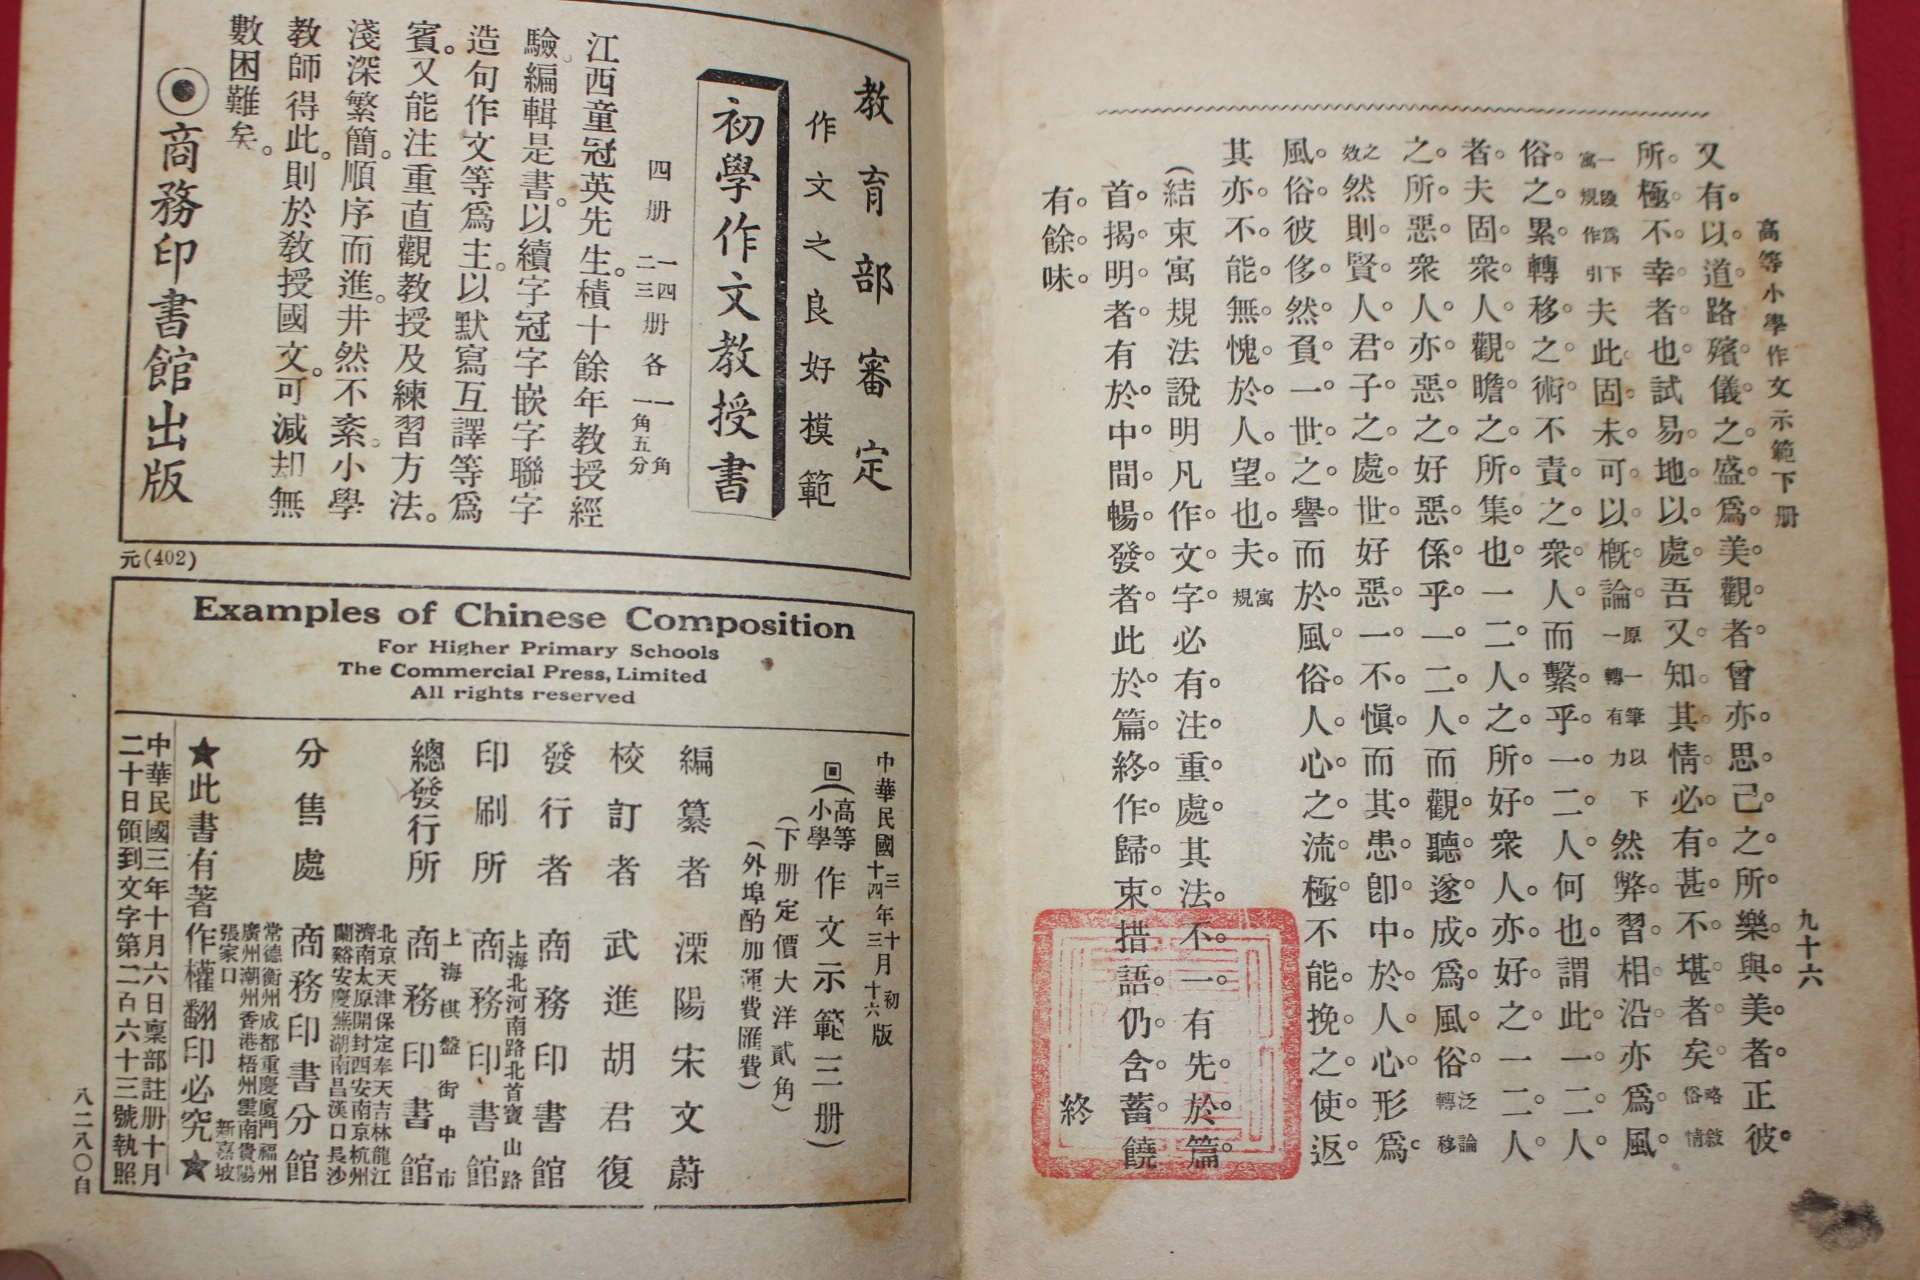 高等小學作文示範下册
九十六
又有以道路殯儀之盛爲美觀者曾亦思己之所樂與美者正彼
所極不幸者也試易地以處吾又知其情必有甚不堪者矣略敘俗情
一段爲下寓規作引夫此固未可以槪論原一筆以下一轉有力然弊習相沿亦爲風
俗之累轉移之術不責之衆人而繫乎一二人何也謂此一二人
者夫固衆人觀瞻之所集也一二人之所好衆人亦好之一二人
之所惡衆人亦惡之好惡係乎一二人而觀聽遂成爲風俗泛論轉移
之效然則賢人君子之處世好惡一不愼而其患卽中於人心形爲
風俗彼侈然負一世之譽而於風俗人心之流極不能挽之使返
其亦不能無愧於人望也夫寓規
(結束寓規法說明凡作文字必有注重處其法不一有先於篇
首揭明者有於中間暢發者此於篇終作歸束措語仍含蓄饒
有餘味
終
教育部審定
作文之良好模範
初學作文教授書
四册 一四二三册各一角一角五分
江西童冠英先生。積十餘年教授經
驗。編輯是書。以續字冠字嵌字聯字
造句作文等爲主。以默寫互譯等爲
賓。又能注重直觀教授及練習方法。
淺深繁簡。順序而進。井然不紊。小學
教師得此。則於教授國文。可減却無
數困難矣。
◉商務印書館出版
元(402)
Examples of Chinese Composition
For Higher Primary Schools
The Commercial Press, Limited
All rights reserved
中華民國三年十月初版
十四年三月十六版
回(高等小學作文示範三册)
(下册定價大洋貳角)
(外埠酌加運費匯費)
編纂者 溧陽宋文蔚
校訂者 武進胡君復
發行者 商務印書館
印刷所 上海北河南路北首寶山路 商務印書館
總發行所 上海棋盤街中市 商務印書館
分售處 北京天津保定奉天吉林龍江
濟南太原開封西安南京杭州
蘭谿安慶蕪湖南昌漢口長沙
商務印書分館
常德衡州成都重慶廈門福州
廣州潮州香港梧州雲南貴陽
張家口 新嘉坡
★此書有著作權翻印必究★
中華民國三年十月六日稟部註册十月
二十日領到文字第二百六十三號執照
八二八〇自